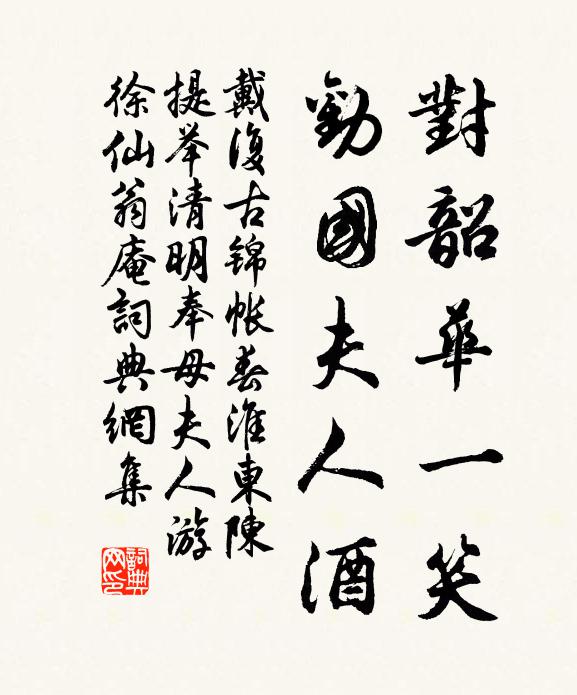 對韶華一笑
勸國夫人酒
戴復古錦帐春淮東陳
提举清明奉母夫人游
徐仙翁庵詞典網集
詞典網印